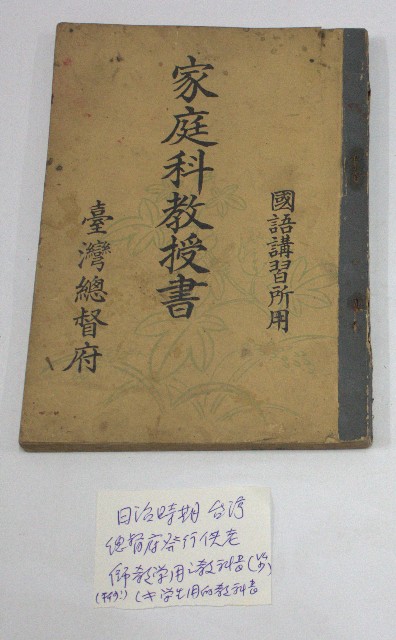 國語講習所用
家庭科教授書
臺灣總督府
日治時期 台湾
總督府發行供老
師教学用之教科書(少)
(特少!) (非学生用的教科書